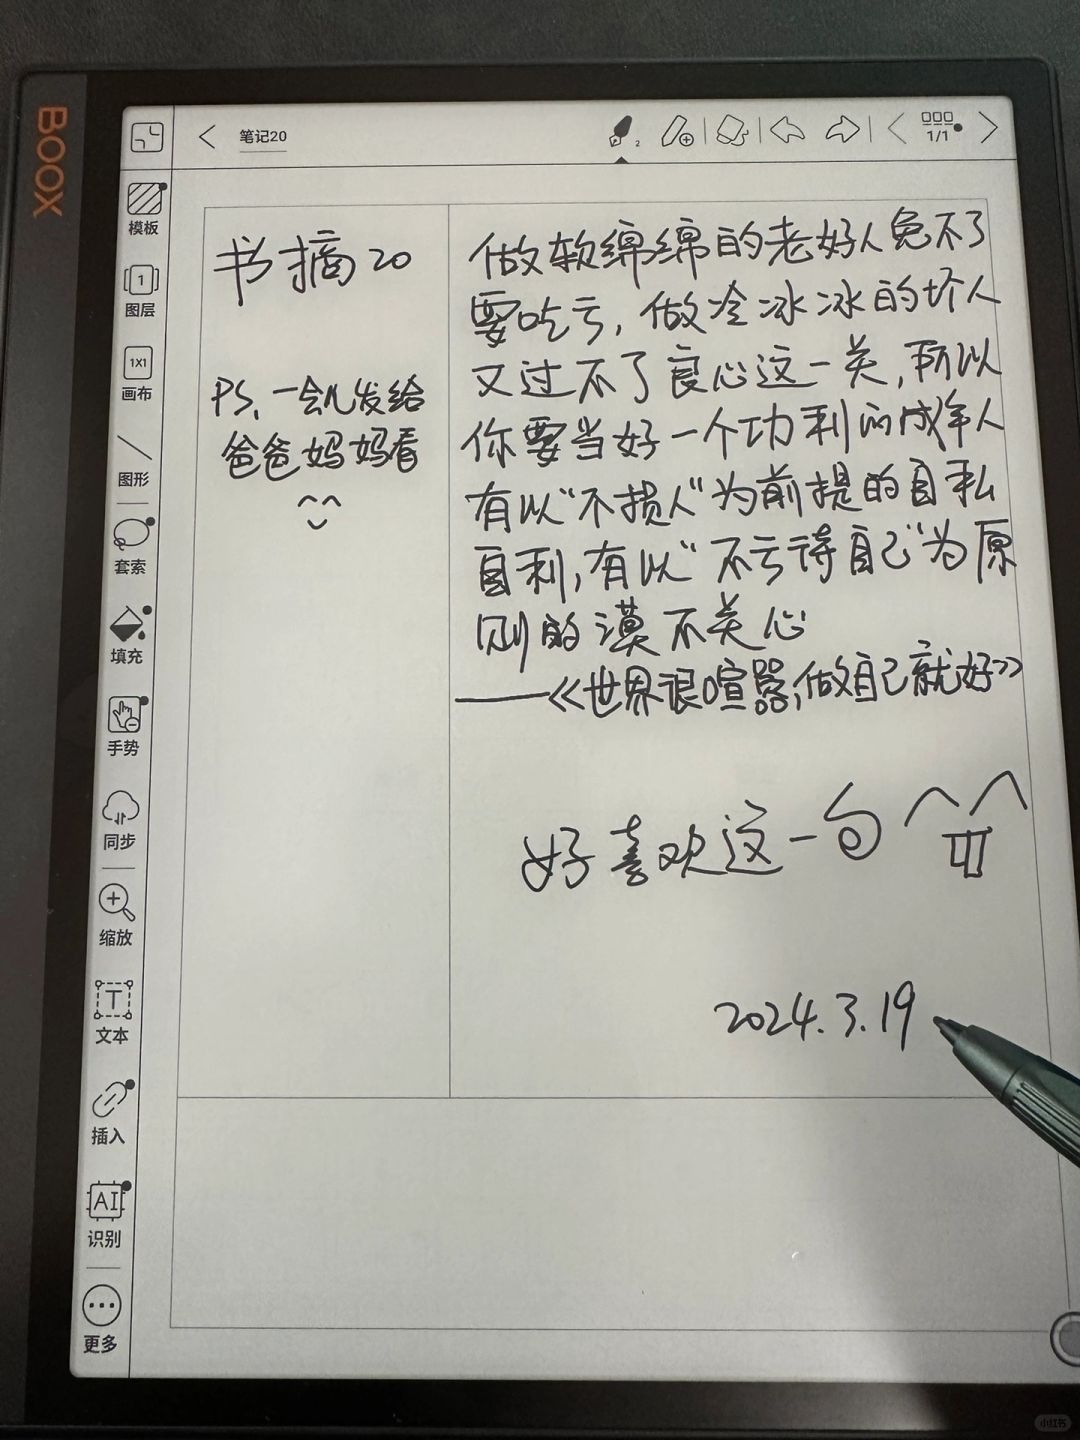 BOOX
笔记20
2
1/1
模板
1
图层
1X1
画布
图形
套索
填充
手势
同步
缩放
T
文本
插入
AI
识别
更多
书摘20
PS、一会儿发给
爸爸妈妈看
做软绵绵的老好人免不了
要吃亏，做冷冰冰的坏人
又过不了良心这一关，所以
你要当好一个功利的成年人
有以“不损人”为前提的自私
自利，有以“不亏待自己”为原
则的漠不关心
——《世界很喧嚣，做自己就好》
好喜欢这一句
2024.3.19
小红书